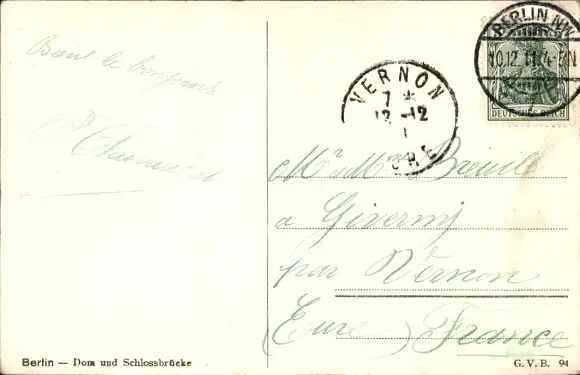 BERLIN NW
10.12.11.4-5N
DEUTSCHES REICH
VERNON
7 *
12 -12
EURE
Mr & Mme Breuil
a Giverny
par Vernon
(Eure) France
Berlin — Dom und Schlossbrücke
G. V. B. 94